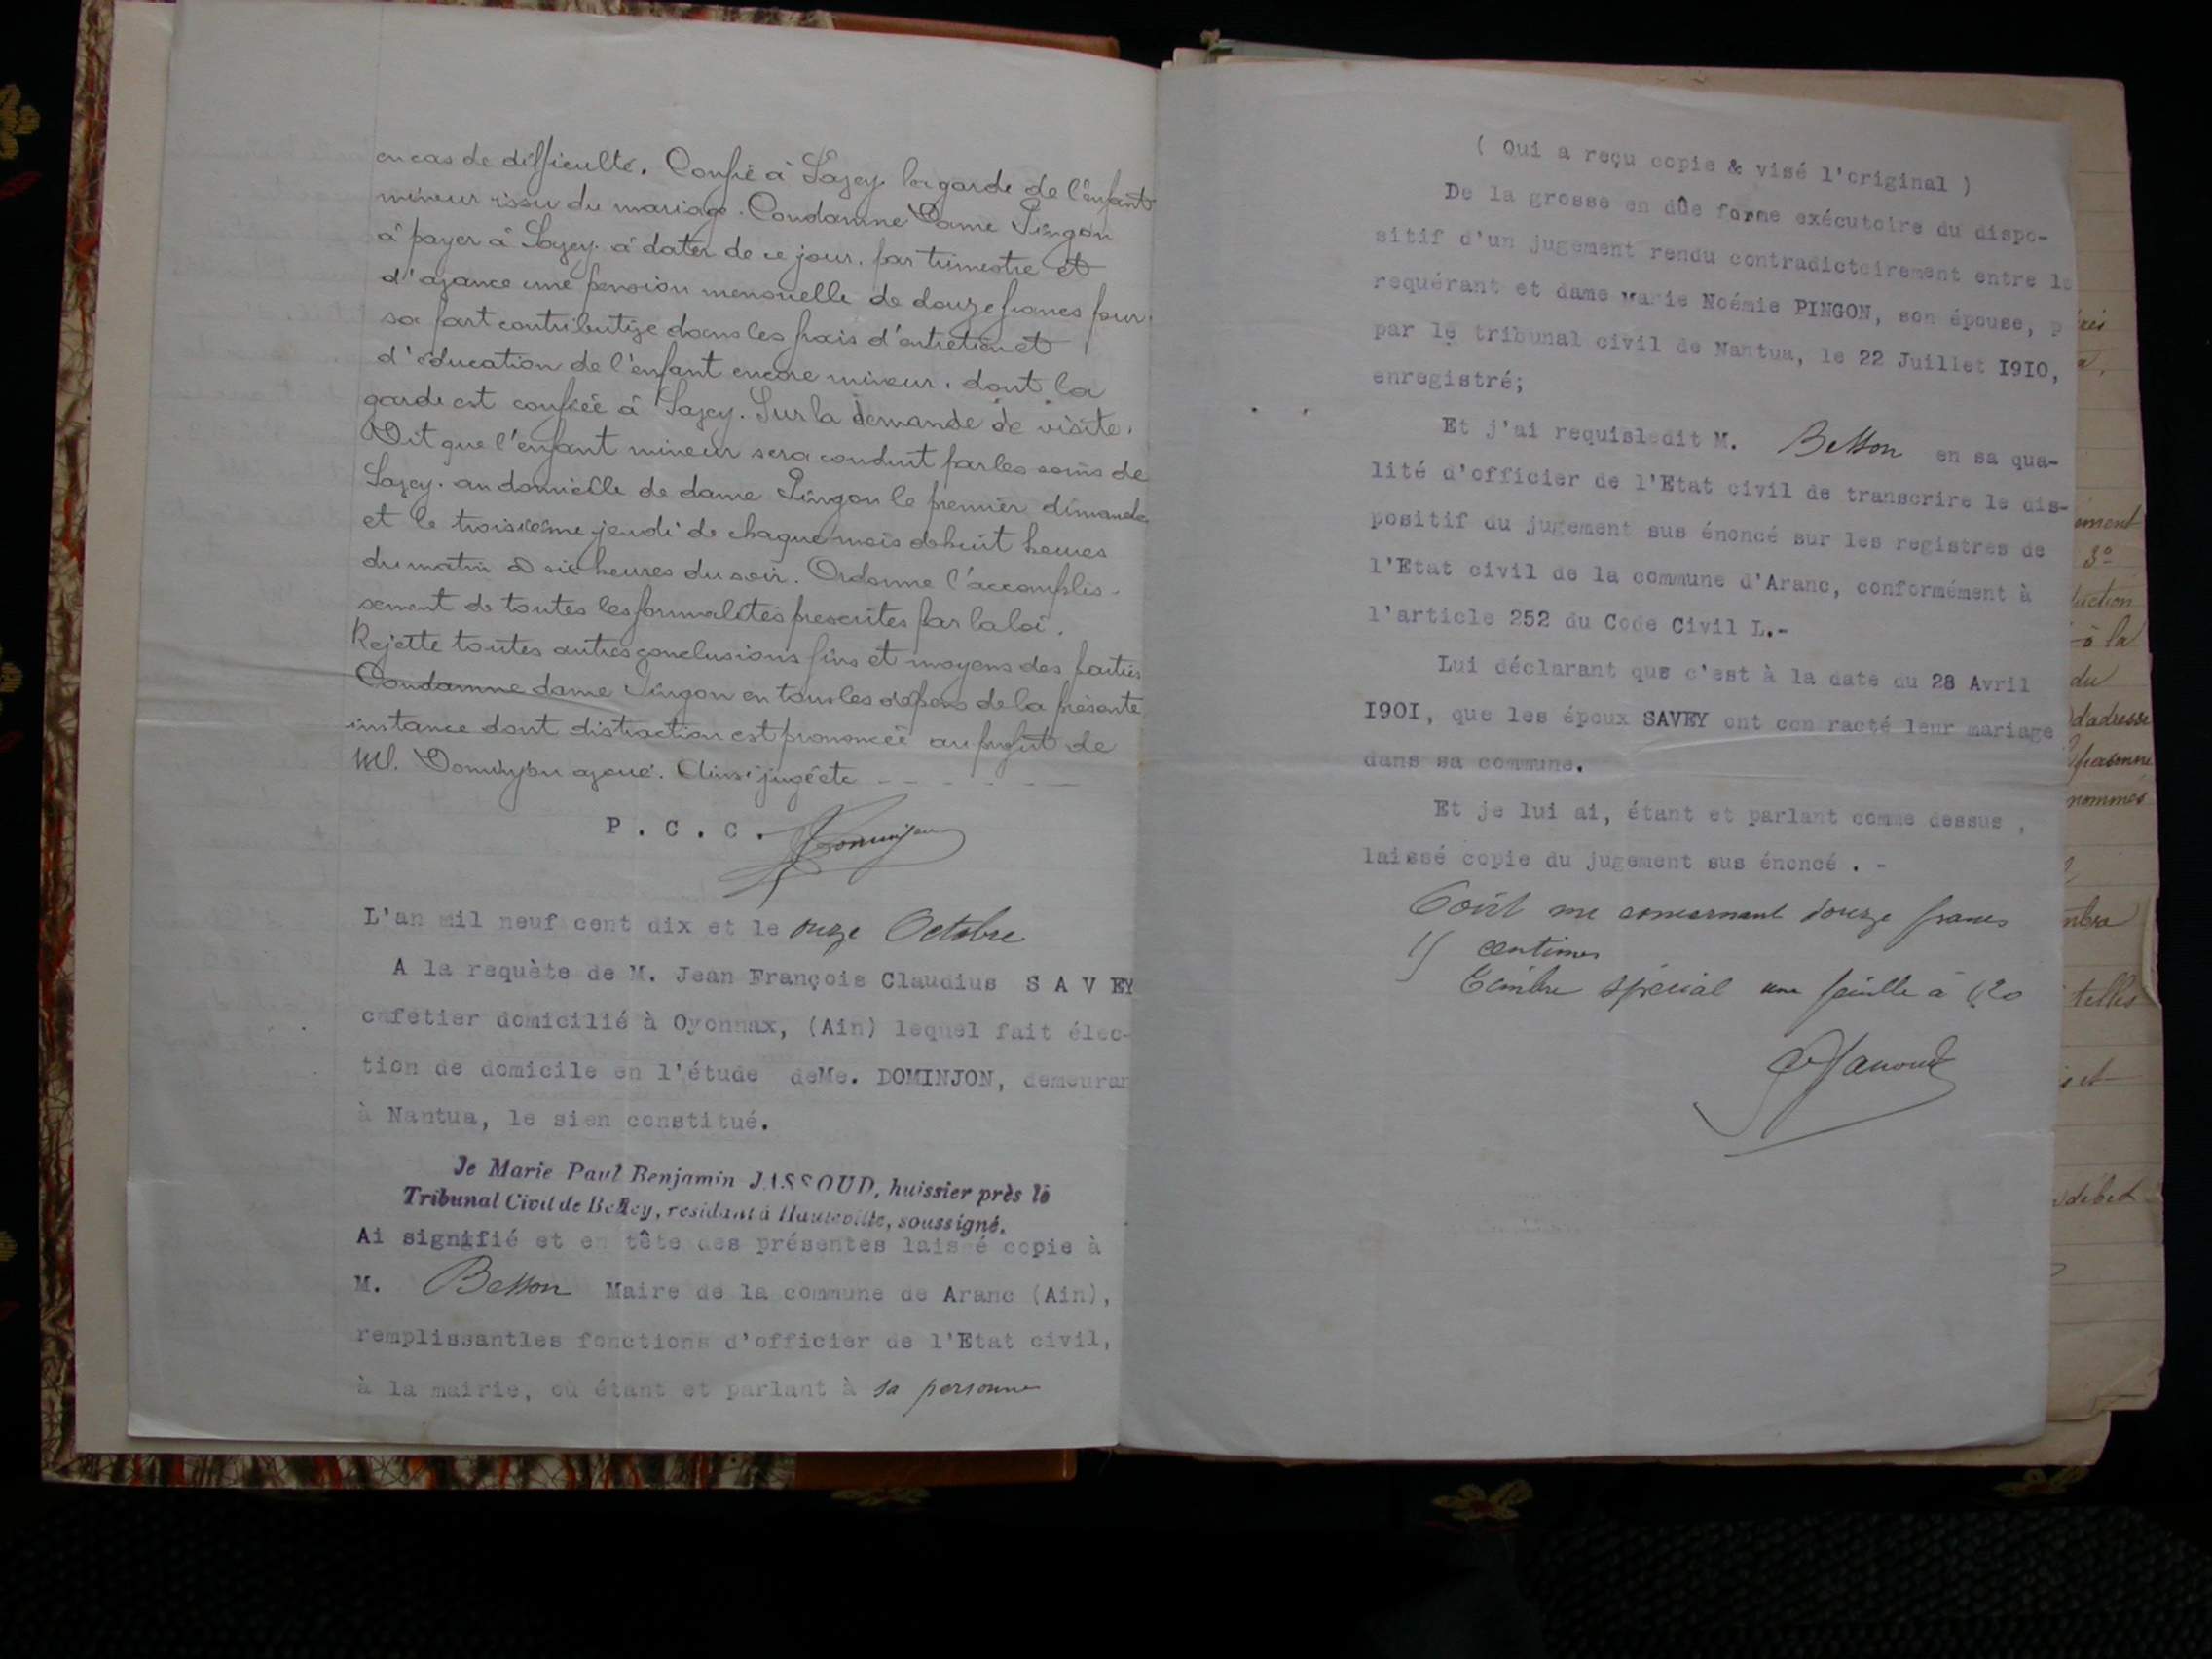 en cas de difficulté. Confie à Savey la garde de l'enfant
mineur issu du mariage. Condamne Dame Pingon
à payer à Savey à dater de ce jour, par trimestre et
d'avance une pension mensuelle de douze francs pour
sa part contributive dans les frais d'entretien et
d'éducation de l'enfant encore mineur, dont la
garde est confiée à Savey. Sur la demande de visite,
Dit que l'enfant mineur sera conduit par les soins de
Savey au domicile de dame Pingon le premier dimanche
et le troisième jeudi de chaque mois de huit heures
du matin à six heures du soir. Ordonne l'accomplis-
sement de toutes les formalités prescrites par la loi.
Rejette toutes autres conclusions fins et moyens des parties
Condamne dame Pingon en tous les dépens de la présente
instance dont distraction est prononcée au profit de
M. Dominjon avoué. Ainsi jugé etc
P. C. C. Dominjon
L'an mil neuf cent dix et le onze Octobre
A la requète de M. Jean François Claudius S A V EY
cafetier domicilié à Oyonnax, (Ain) lequel fait élec-
tion de domicile en l'étude deMe. DOMINJON, demeuran
à Nantua, le sien constitué.
Je Marie Paul Benjamin JASSOUD, huissier près le
Tribunal Civil de Belley, résidant à Hauteville, soussigné.
Ai signifié et en tête des présentes laissé copie à
M. Besson Maire de la commune de Aranc (Ain),
remplissantles fonctions d'officier de l'Etat civil,
à la mairie, où étant et parlant à sa personne
( Qui a reçu copie & visé l'original )
De la grosse en dûe forme exécutoire du dispo-
sitif d'un jugement rendu contradictoirement entre le
requérant et dame Marie Noémie PINGON, son épouse, p
par le tribunal civil de Nantua, le 22 Juillet I9I0,
enregistré;
Et j'ai requisledit M. Besson en sa qua-
lité d'officier de l'Etat civil de transcrire le dis-
positif du jugement sus énoncé sur les registres de
l'Etat civil de la commune d'Aranc, conformément à
l'article 252 du Code Civil L.-
Lui déclarant que c'est à la date du 28 Avril
I90I, que les époux SAVEY ont contracté leur mariage
dans sa commune.
Et je lui ai, étant et parlant comme dessus ,
laissé copie du jugement sus énoncé . -
Coût me concernant douze francs
centimes
Timbre spécial une feuille à
Jassoud
ument
3º
à la
du
d'adresse
personne
nommés
telles
et
débet